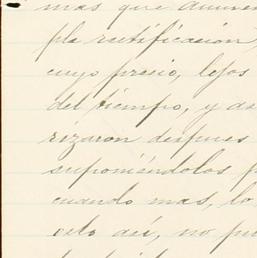 mas que aumen
pla rectificación,
cuyo presio, lejos
del tiempo, y as
rizaron despues
suponiéndolos p
cuando mas, lo
esto así, no pu